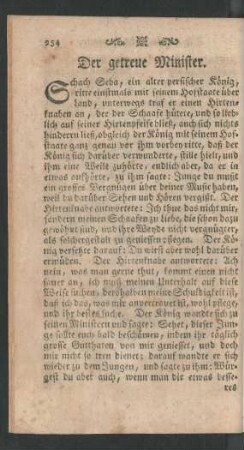 954
Der getreue Minister.
Schach Seba, ein alter persischer König,
ritte einstmals mit seinem Hofstaate über
land, unterwegs traf er einen Hirten-
knaben an, der der Schaafe hütete, und so lieb-
lich auf seiner Hirtenpfeife bließ, auch sich nichts
hinderen ließ, obgleich der König mit seinem Hof-
staate ganz genau vor ihm vorbey ritte, daß der
König sich darüber verwunderte, stille hielt, und
ihm eine Weile zuhörte, endlich aber, da er in
etwas aufhörte, zu ihm sagte: Junge du mußt
ein grosses Vergnügen über deiner Music haben,
weil du darüber Sehen und Hören vergißt. Der
Hirtenknabe antwortete: Ich thue das nicht mir,
sondern meinen Schaafen zu liebe, die schon dazu
gewohnt sind, und ihre Weyde nicht vergnügter,
als solchergestalt zu geniessen pflegen. Der Kö-
nig versetzte darauf: Du wirst aber wohl darüber
ermüden. Der Hirtenknabe antwortete: Ach
nein, was man gerne thut, kommt einen nicht
sauer an, ich muß meinen Unterhalt auf diese
Weise suchen, derohalben meine Schuldigkeit ist,
daß ich das, was mir anvertrouet ist, wohl pflege,
und ihr bestes suche. Der König wandte sich zu
seinen Ministern und sagte: Sehet, dieser Jun-
ge sollte euch bald beschämen, indem ihr täglich
grosse Gutthaten von mir geniesset, und doch
mir nicht so tren dienet: darauf wandte er sich
wieder zu dem Jungen, und sagte zu ihm: Wün-
gest du aber auch, wenn man dir etwas besse-
res